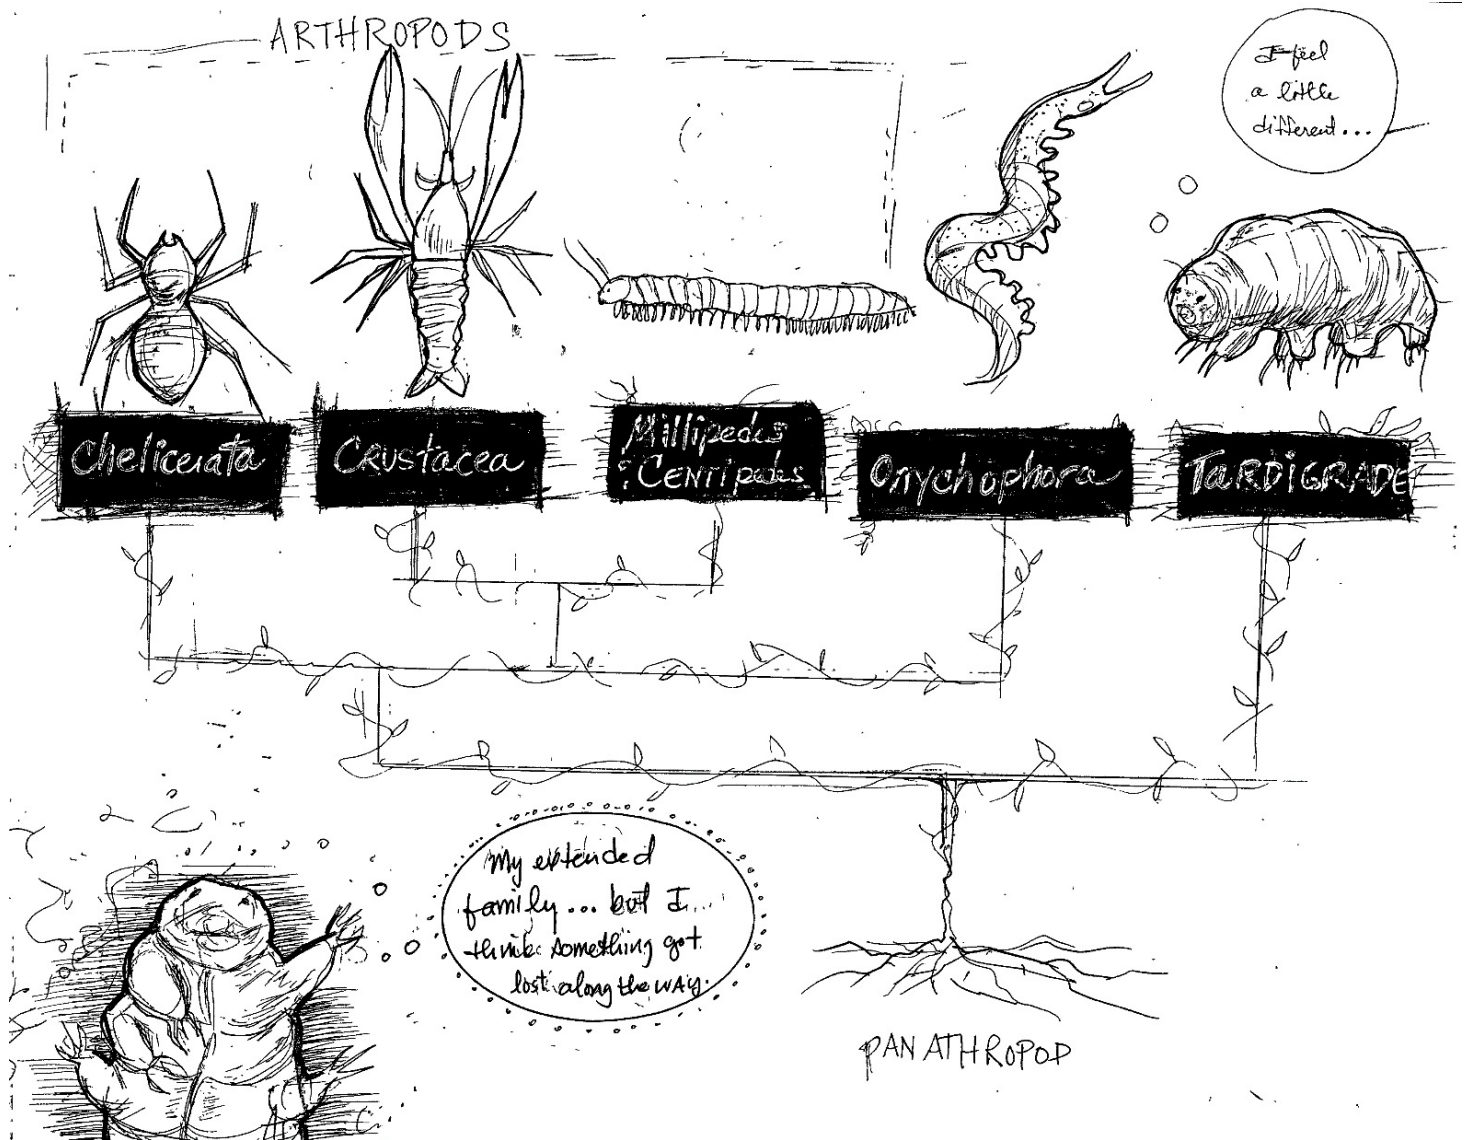 ARTHROPODS
I feel
a little
different...
Chelicerata
Crustacea
Millipedes
& Centipedes
Onychophora
TARDIGRADE
My extended
family... but I...
think something got
lost along the way.
PANATHROPOD